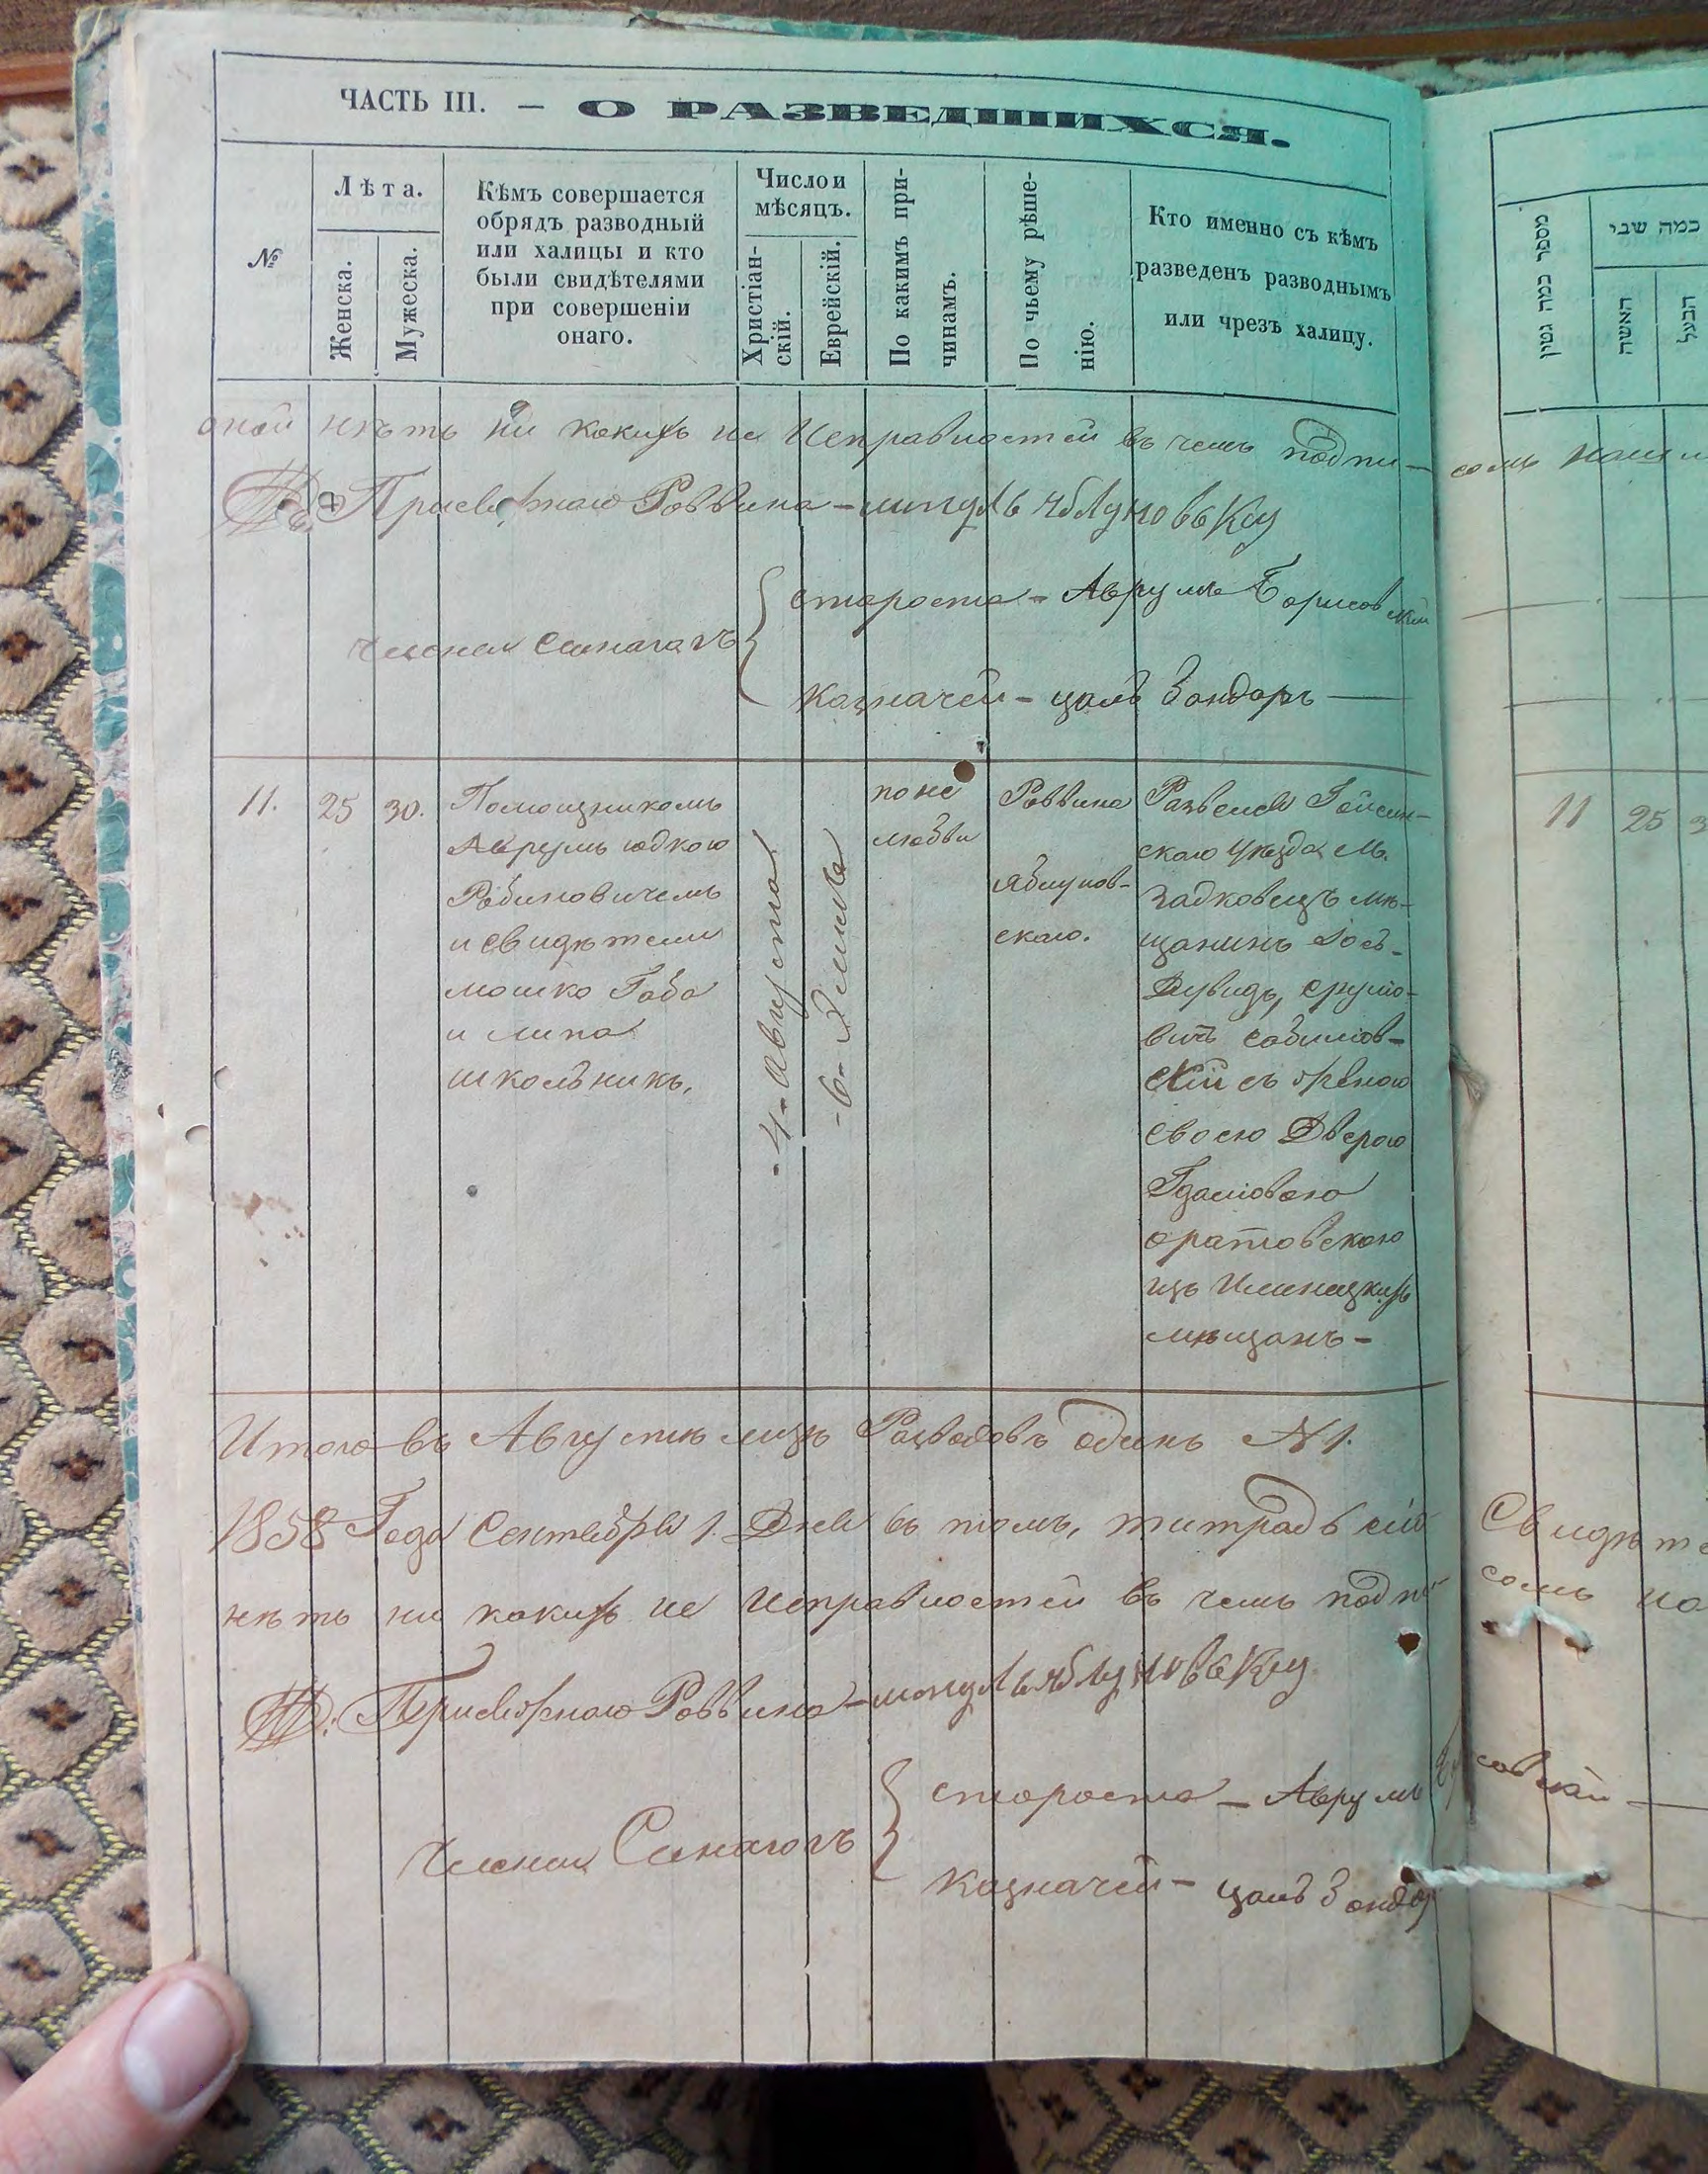 ЧАСТЬ III. — О РАЗВЕДШИХСЯ.
№
Лѣта.
Женска.
Мужеска.
Кѣмъ совершается
обрядъ разводный
или халицы и кто
были свидѣтелями
при совершеніи
онаго.
Число и
мѣсяцъ.
Христіан-
скій.
Еврейскій.
По какимъ при-
чинамъ.
По чьему рѣше-
нію.
Кто именно съ кѣмъ
разведенъ разводнымъ
или чрезъ халицу.
оной нѣтъ ни какихъ не Исправностей въ чемъ подпи-
Раввина
староста - Аврумъ Борисовский
члени Синагогъ
казначей - цаль Зондоръ
11. 25 30.
Помощникомъ
Аврумъ юдкою
Рабиновичемъ
и свидѣтели
мошко Габа
и липа
школьникъ,
4 - Августа
6 - Элила
по не
любви
Раввина
яблунов-
скаго.
Развелся Гайсин-
скаго уѣзда м.
мѣ-
щанинъ Іось-
Дувидъ, Срулю-
вичъ
скій съ женою
своею Дверою
оратовскою
изъ Илинецкихъ
мѣщанъ -
Итого въ Августѣ мцѣ Разводовъ одинъ № 1.
1858 Года Сентября 1. Дня въ тетрадь сій
нѣтъ ни какихъ не Исправностей въ чемъ подпи
Раввина
члени Синагогъ
староста - Аврумъ
казначей - цаль Зондор
מספר כמה גטין
כמה שני
האשה
הבעל
11 25